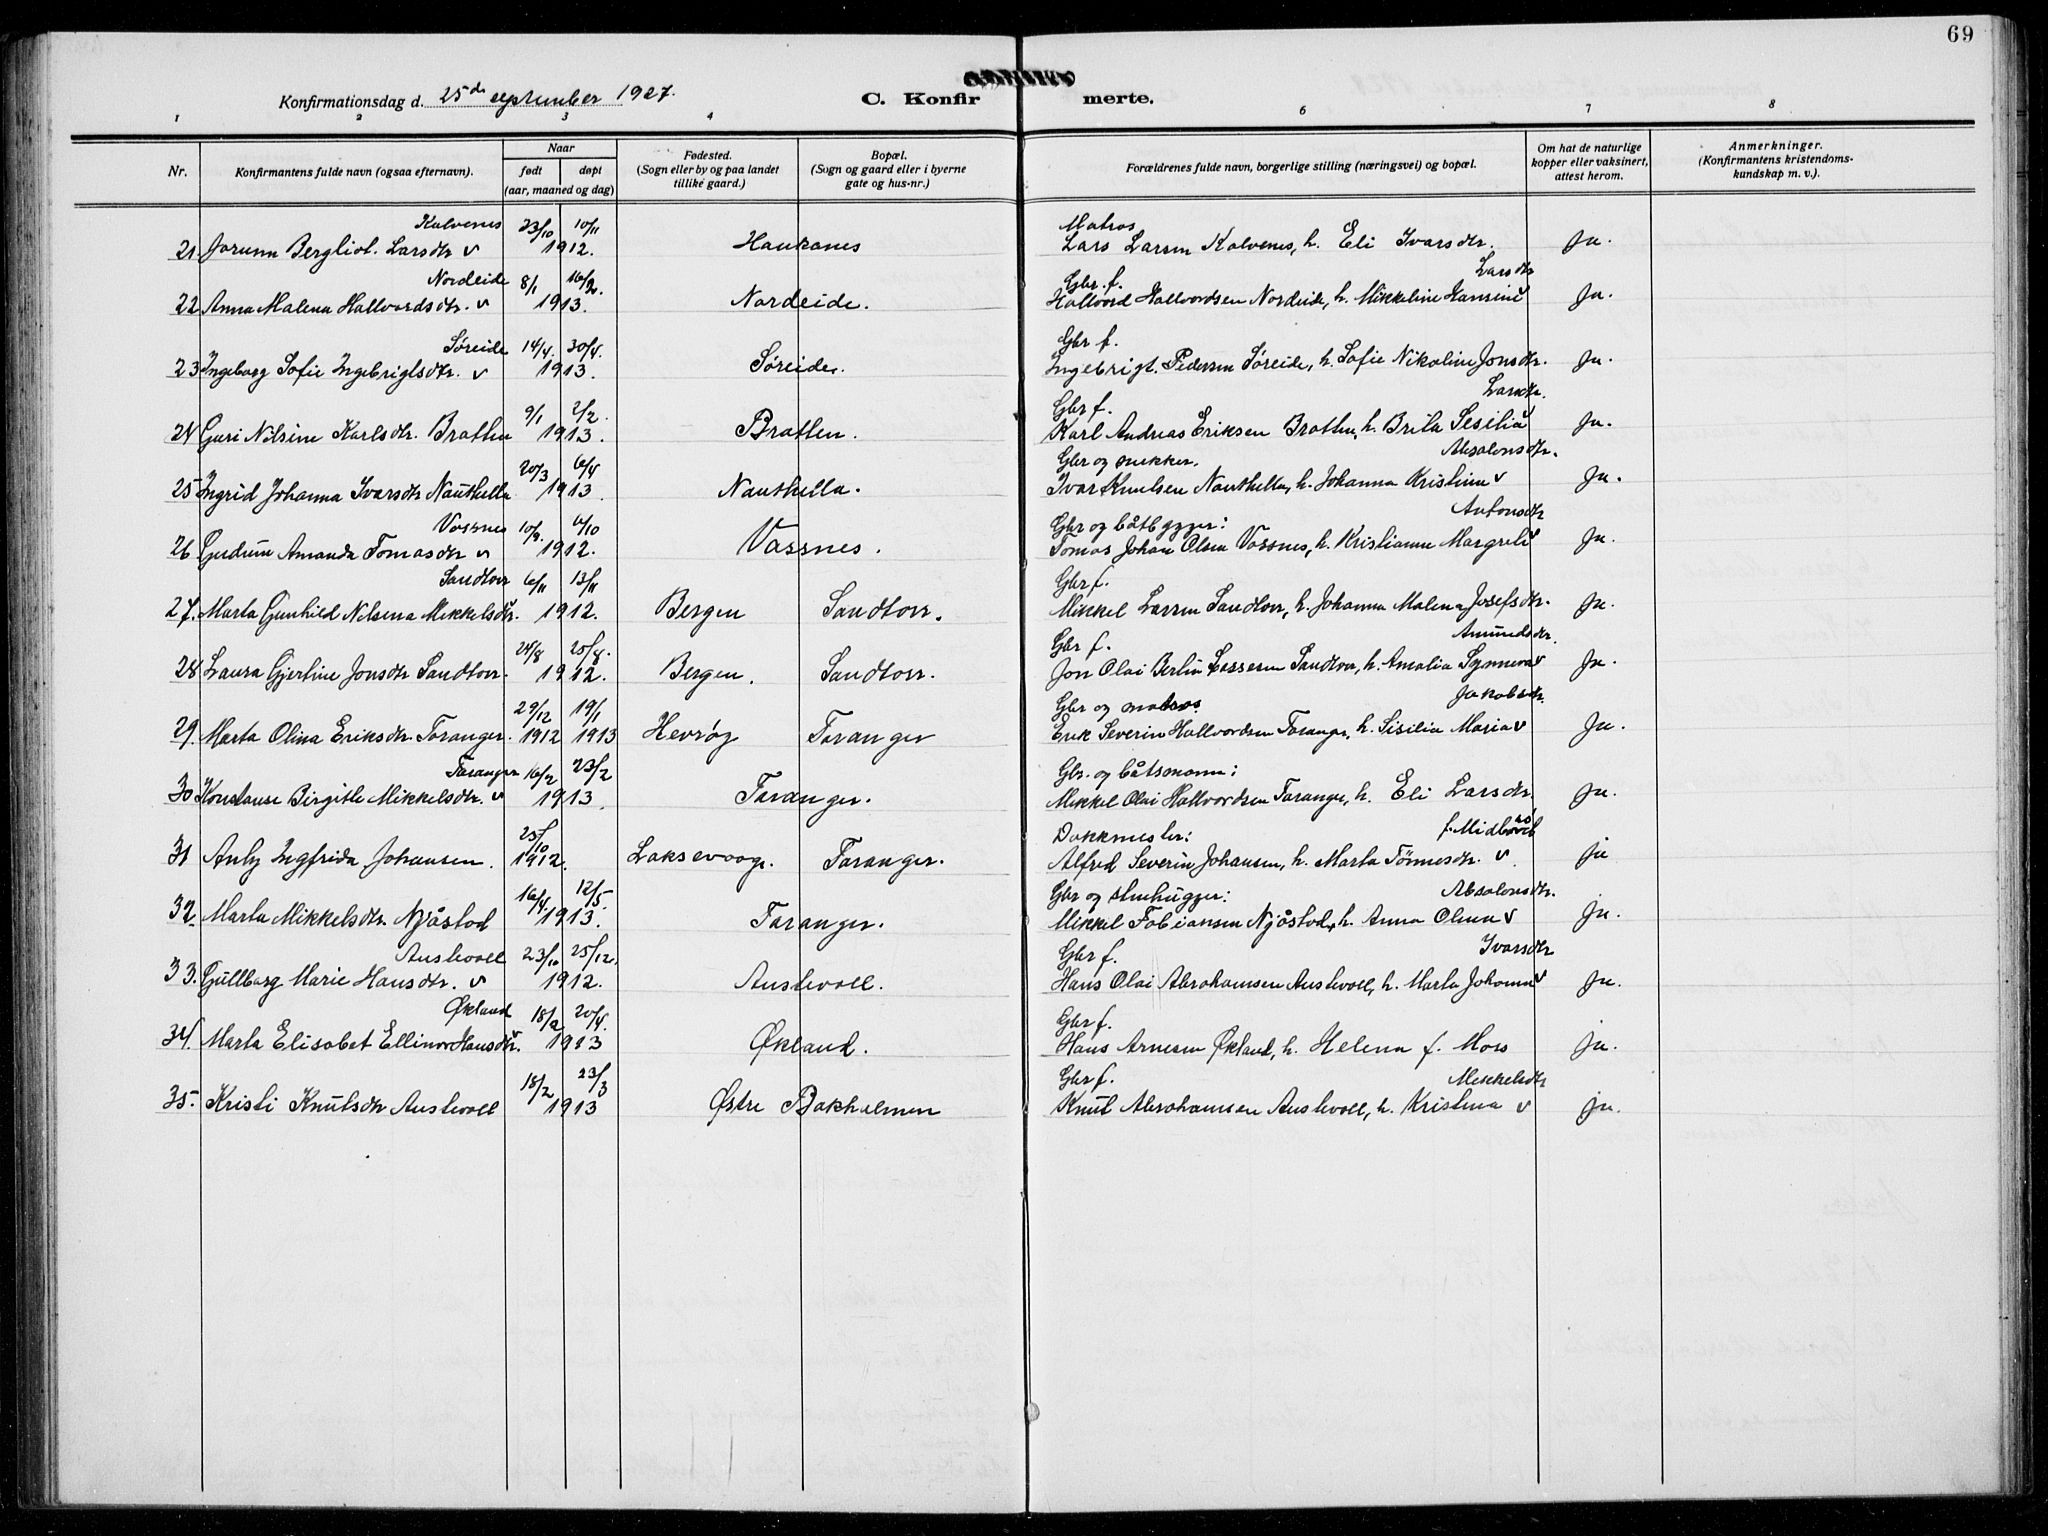 69
Konfirmationsdag d. 25de september 1927.
C. Konfirmerte.
1 2 3 4 6 7 8
Nr. Konfirmantens fulde navn (ogsaa efternavn). Naar født døpt (aar, maaned og dag) Fødested. (Sogn eller by og paa landet tillike gaard.) Bopæl. (Sogn og gaard eller i byerne gate og hus-nr.) Forældrenes fulde navn, borgerlige stilling (næringsvei) og bopæl. Om hat de naturlige kopper eller vaksinert, attest herom. Anmerkninger. (Konfirmantens kristendomskundskap m. v.).
Kalvenes 23/10 10/11 Matros
21 Jorunn Bergliot Larsdtr v 1912. Haukanes Lars Larsen Kalvenes, h. Eli Ivarsdtr. Ja.
Nordeide 8/1 16/2. Gbr. f. Larsdtr
22 Anna Malena Hallvardsdtr. v 1913. Nordeide. Hallvard Hallvardsen Nordeide, h. Mikkeline Hansine v Ja.
Søreide 14/4. 30/4. Gbr f.
23 Ingeborg Sofie Ingebrigtsdtr. v 1913. Søreide. Ingebrigt Pedersen Søreide, h. Sofie Nikoline Jonsdtr. Ja.
9/1 2/2. Gbr f. Larsdtr.
24 Guri Nilsine Karlsdtr. Bratten 1913. Bratten. Karl Andreas Eriksen Bratten, h. Brita Sesilia v Ja.
20/3 6/4 Gbr og snekker. Absalonsdtr.
25 Ingrid Johanna Ivarsdtr Nauthella. 1913. Nauthella. Ivar Knutsen Nauthella, h. Johanna Kristine v Ja.
Vassnes 10/9. 6/10 Gbr og båtbygger: Antonsdtr
26 Gudrun Amanda Tomasdtr v 1912. Vassnes. Tomas Johan Olsen Vassnes, h. Kristianne Margrete v Ja.
Sandtorr 6/11 13/11 Gbr f.
27. Marta Gunhild Nilsena Mikkelsdtr. 1912. Bergen Sandtorr. Mikkel Larsen Sandtorr, h. Johanna Malena Josefsdtr. Ja.
24/8 25/8. Gbr f. Amundsdtr.
28 Laura Gjertine Jonsdtr Sandtorr. 1912. Bergen. Sandtorr. Jon Olai Berlin Lassesen Sandtorr, h. Amalia Synneva v Ja.
29/12 19/1 Gbr og matros. Jakobsdtr.
29. Marta Olina Eriksdtr. Taranger. 1912 1913 Hevrøy Taranger Erik Severin Hallvardsen Taranger, h. Sisilia Maria v Ja.
Taranger 16/2 23/2 Gbr. og båtsmann:
30 Konstanse Birgitte Mikkelsdtr. v 1913. Taranger. Mikkel Olai Hallvardsen Taranger, h. Eli Larsdtr. Ja.
25/10 Dokkmester: f.
31 Anly Ingfrida Johansen. 1912. Laksevaag. Taranger. Alfred Severin Johansen, h. Marta Tönnesdtr. v. ja
16/4. 12/5. Gbr og stenhugger: Absalonsdtr.
32 Marta Mikkelsdtr. Njåstad 1913. Taranger. Mikkel Fabiansen Njåstad, h. Anna Olena v Ja.
Austevoll 23/10 25/12. Gbr f. Ivarsdtr
33. Gullborg Marie Hansdtr. v 1912. Austevoll. Hans Olai Abrahamsen Austevoll, h. Marta Johanna v Ja.
Økland 18/2 20/4. Gbr f.
34. Marta Elisabet Ellinor Hansdtr. 1913 Økland. Hans Arnesen Økland, h. Helena f. Moss ja.
18/2 23/3 Gbr f. Mikkelsdtr
35. Kristi Knutsdtr Austevoll 1913 Østre Bakholmen Knut Abrahamsen Austevoll, h. Kristina v ja.